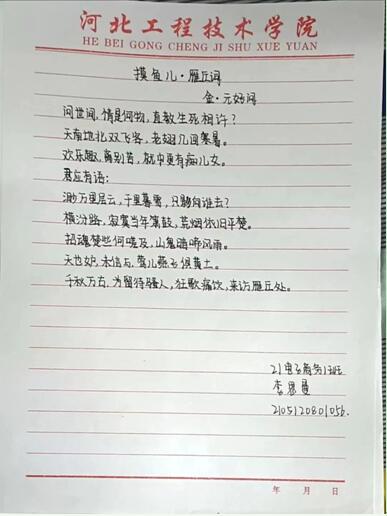 河北工程技术学院
HE BEI GONG CHENG JI SHU XUE YUAN
摸鱼儿·雁丘词
金·元好问
问世间,情是何物,直教生死相许?
天南地北双飞客,老翅几回寒暑。
欢乐趣,离别苦,就中更有痴儿女。
君应有语:
渺万里层云,千里暮雪,只影向谁去?
横汾路,寂寞当年箫鼓,荒烟依旧平楚。
招魂楚些何嗟及,山鬼暗啼风雨。
天也妒,未信与,莺儿燕子俱黄土。
千秋万古,为留待骚人,狂歌痛饮,来访雁丘处。
21电子商务1班
李思曼
210512080105
年 月 日